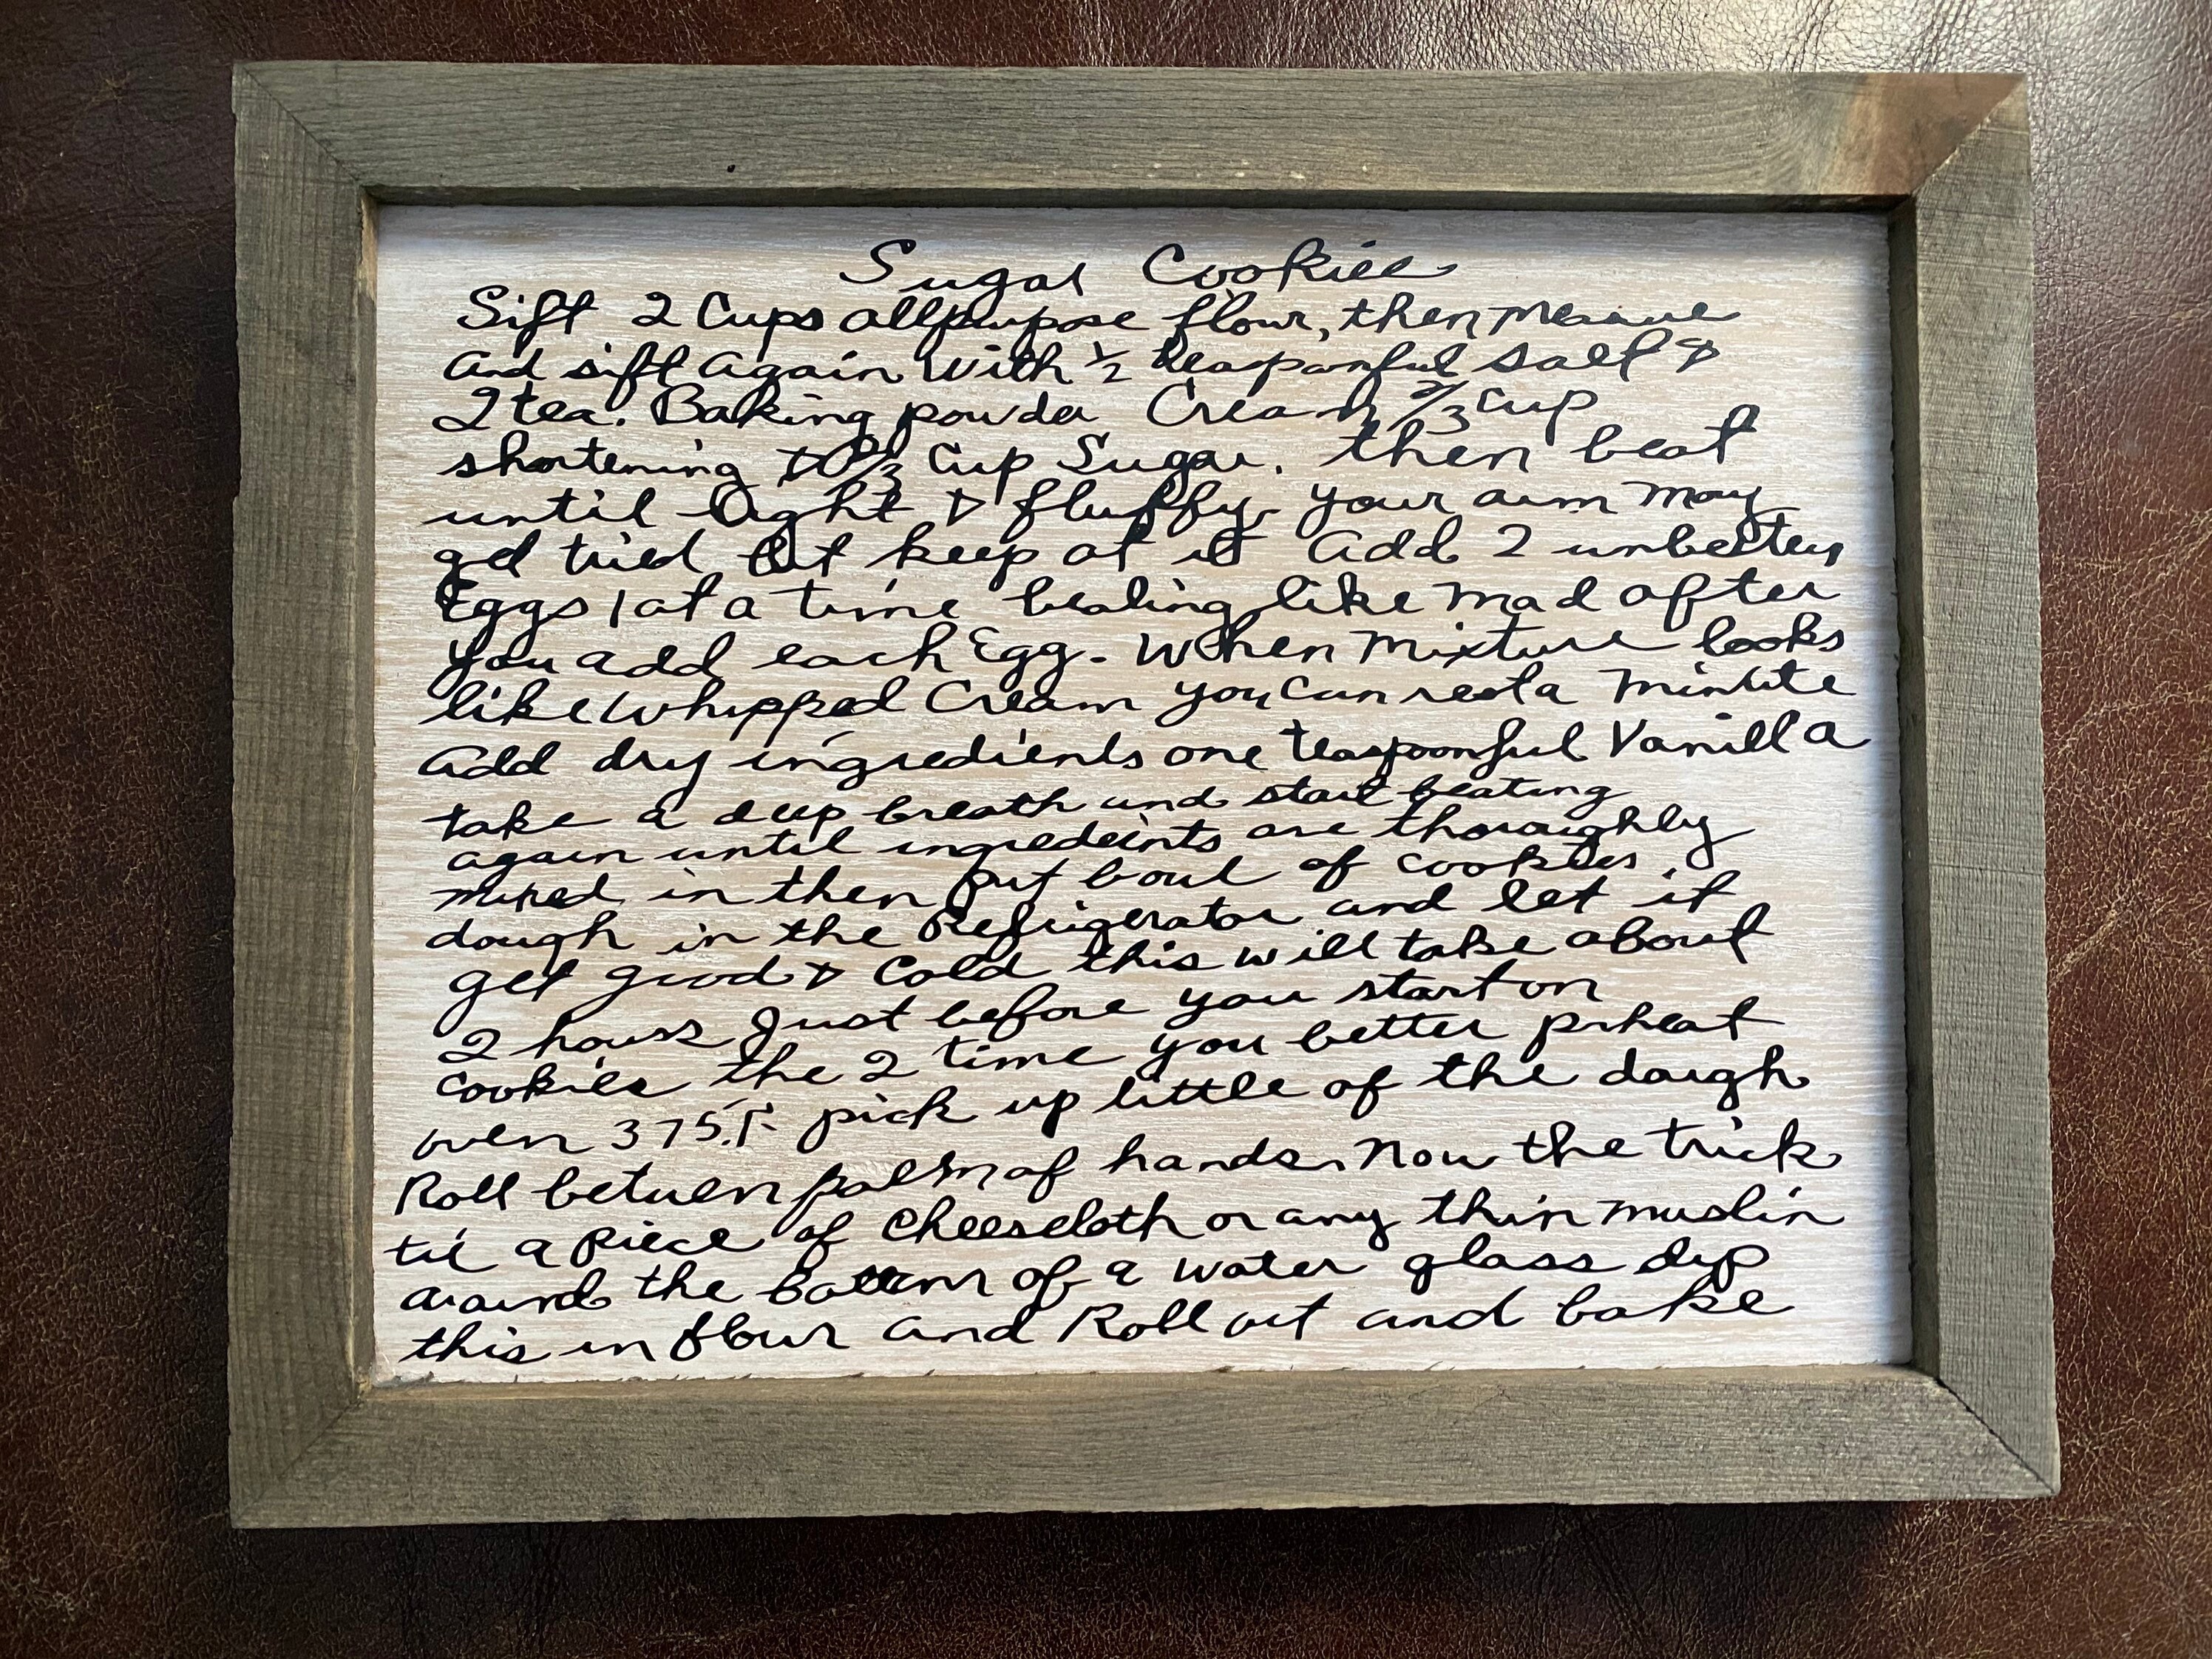 Sugar Cookies
Sift 2 Cups allpurpose flour, then measure
And sift Again With 1/2 teaspoonful salt &
2 tea. Baking powder Cream 2/3 Cup
shortening to Cup Sugar. then beat
until light & fluffy. your arm may
get tried but keep at it Add 2 unbeaten
Eggs 1 at a time beating like mad after
you add each Egg. When Mixture looks
like Whipped Cream you can rest a minute
Add dry ingredients one teaspoonful Vanilla
take a deep breath and start beating
again until ingredeints are thoroughly
mixed in then put bowl of cookies
dough in the Refrigerator and let it
get good & Cold this will take about
2 hours Just before you start on
cookies the 2 time you better prheat
oven 375.F pick up little of the dough
Roll between palm of hands. Now the trick
tie a piece of Cheesecloth or any thin muslin
around the Bottom of a water glass dip
this in flour and Roll out and bake